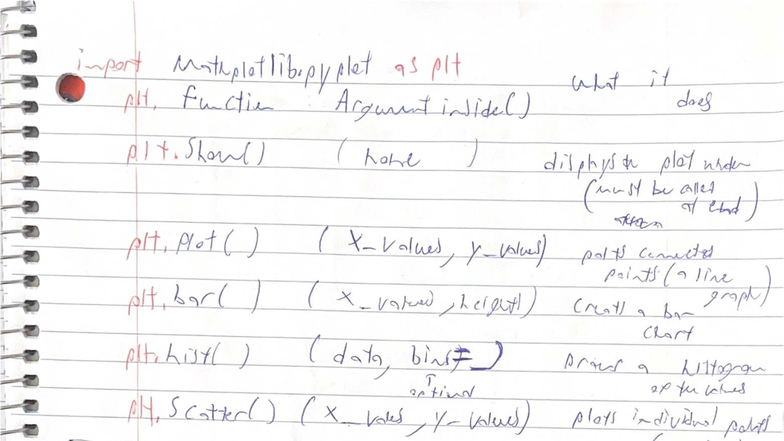 import Mathplotlib.pyplot as plt
plt. function Argument inside() what it does
plt.Show() (none) displays plot
(must be
at end)
plt.plot() (X_values, y_values) plots connected
points (a line
graph)
plt.bar() (X_values, heights) creats a bar
chart
plt.hist() (data, bins=) Draws a histogram
optional of the values
plt.Scatter() (X_vales, y-values) plots individual points